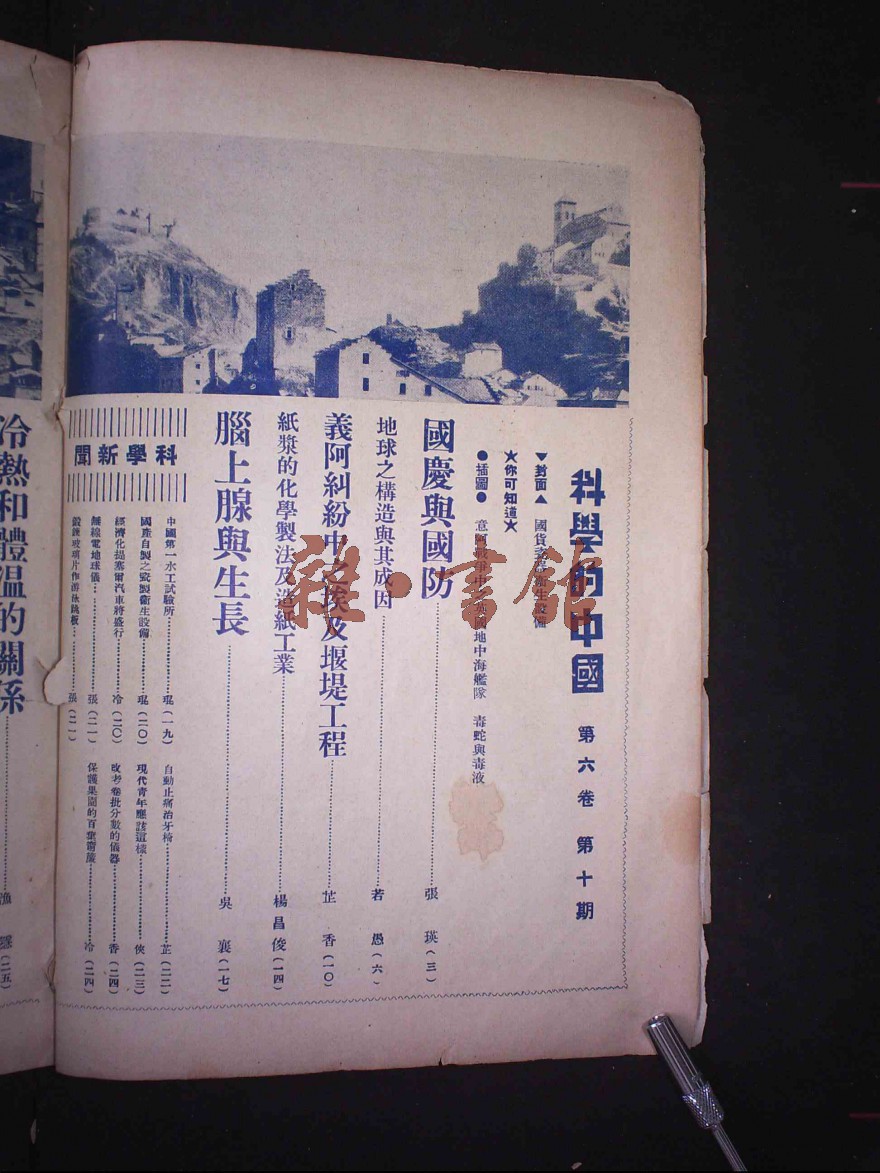 科學的中國 第六卷 第十期
▼封面▲ 國貨瓷器衛生設備
★你可知道★
●插圖● 意阿戰爭中之英國地中海艦隊 毒蛇與毒液
國慶與國防……張瑛(三)
地球之構造與其成因……若愚(六)
義阿糾紛中之埃及堰堤工程……芷香(一〇)
紙漿的化學製法及造紙工業……楊昌俊(一四)
腦上腺與生長……吳襄(一七)
科學新聞
中國第一水工試驗所……琨(一九)
國產自製之瓷製衛生設備……琨(二〇)
經濟化提塞爾汽車將盛行……冷(二〇)
無線電地球儀……張(二一)
玻璃片作游泳跳板……張(二一)
自動止痛治牙椅……芷(二二)
現代青年應該這樣……俠(二三)
改考卷批分數的儀器……香(二四)
保護果園的百葉窗簾……冷(二四)
冷熱和體溫的關係……漁(二五)
雜·書館